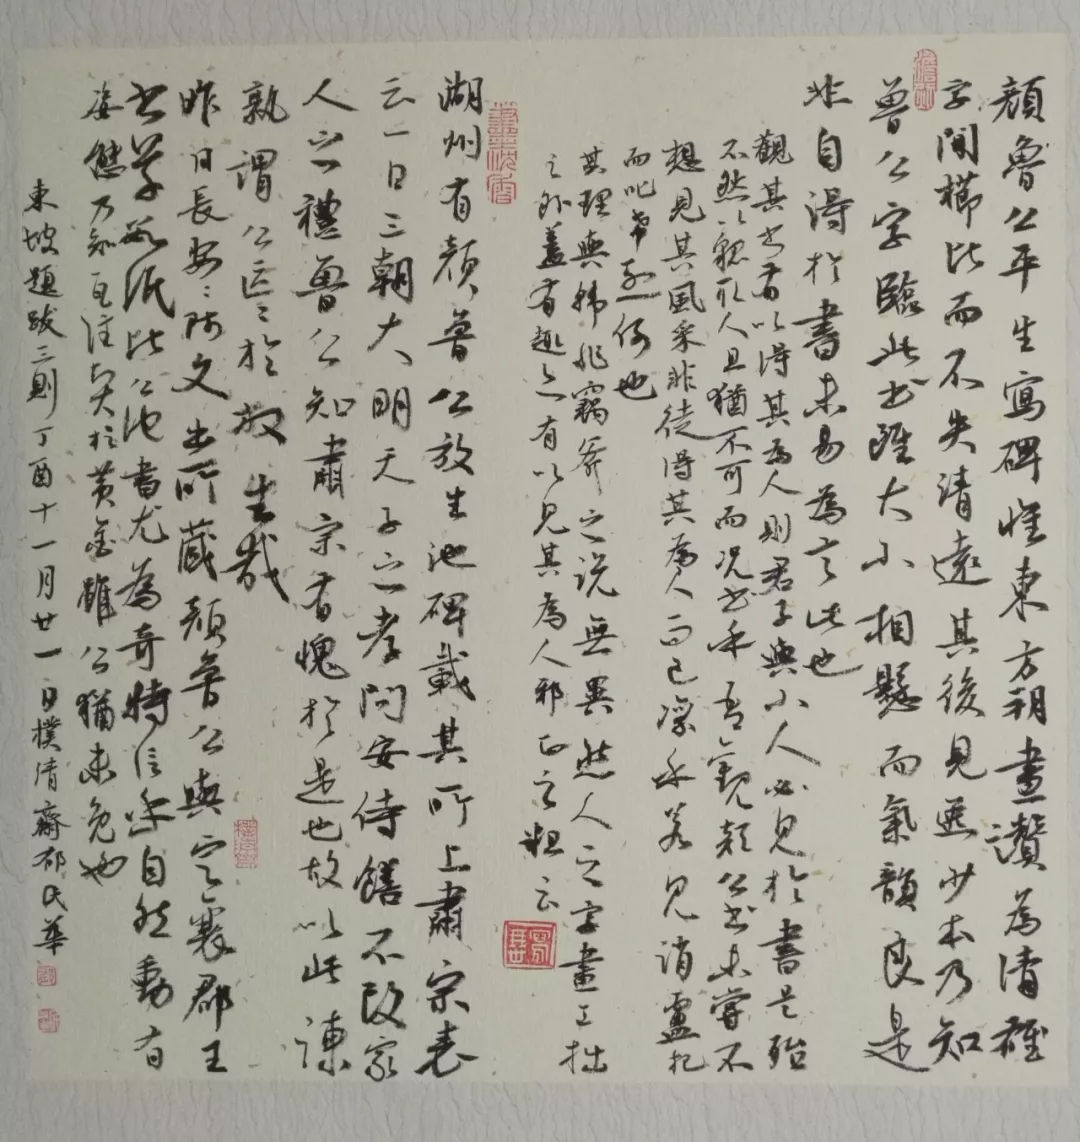 顏魯公平生寫碑惟東方朔畫讚為清雄
字間櫛比而不失清遠其後見逸少本乃知
魯公字臨此書雖大小相懸而氣韻良是
非自得於書未易為言此也
觀其書有以得其為人則君子與小人必見於書是殆
不然以貌取人且猶不可而況書乎吾觀顏公書未嘗不
想見其風采非徒得其為人而已凜乎若見誚盧杞
而叱希烈何也
其理與韓非竊斧之說無異然人之字畫工拙
之外蓋有趣亦有以見其為人邪正之粗云
湖州有顏魯公放生池碑載其所上肅宗表
云一日三朝大明天子之孝問安侍饍不改家
人之禮魯公知肅宗有愧於是也故以此諫
孰謂公區〻於放生哉
昨日長安〻師文出所藏顏魯公與定襄郡王
書草數紙比公他書尤為奇特信乎自然動有
姿態乃知瓦注賢於黃金雖公猶未免也
東坡題跋三則丁酉十一月廿一日樸清齋郁民華